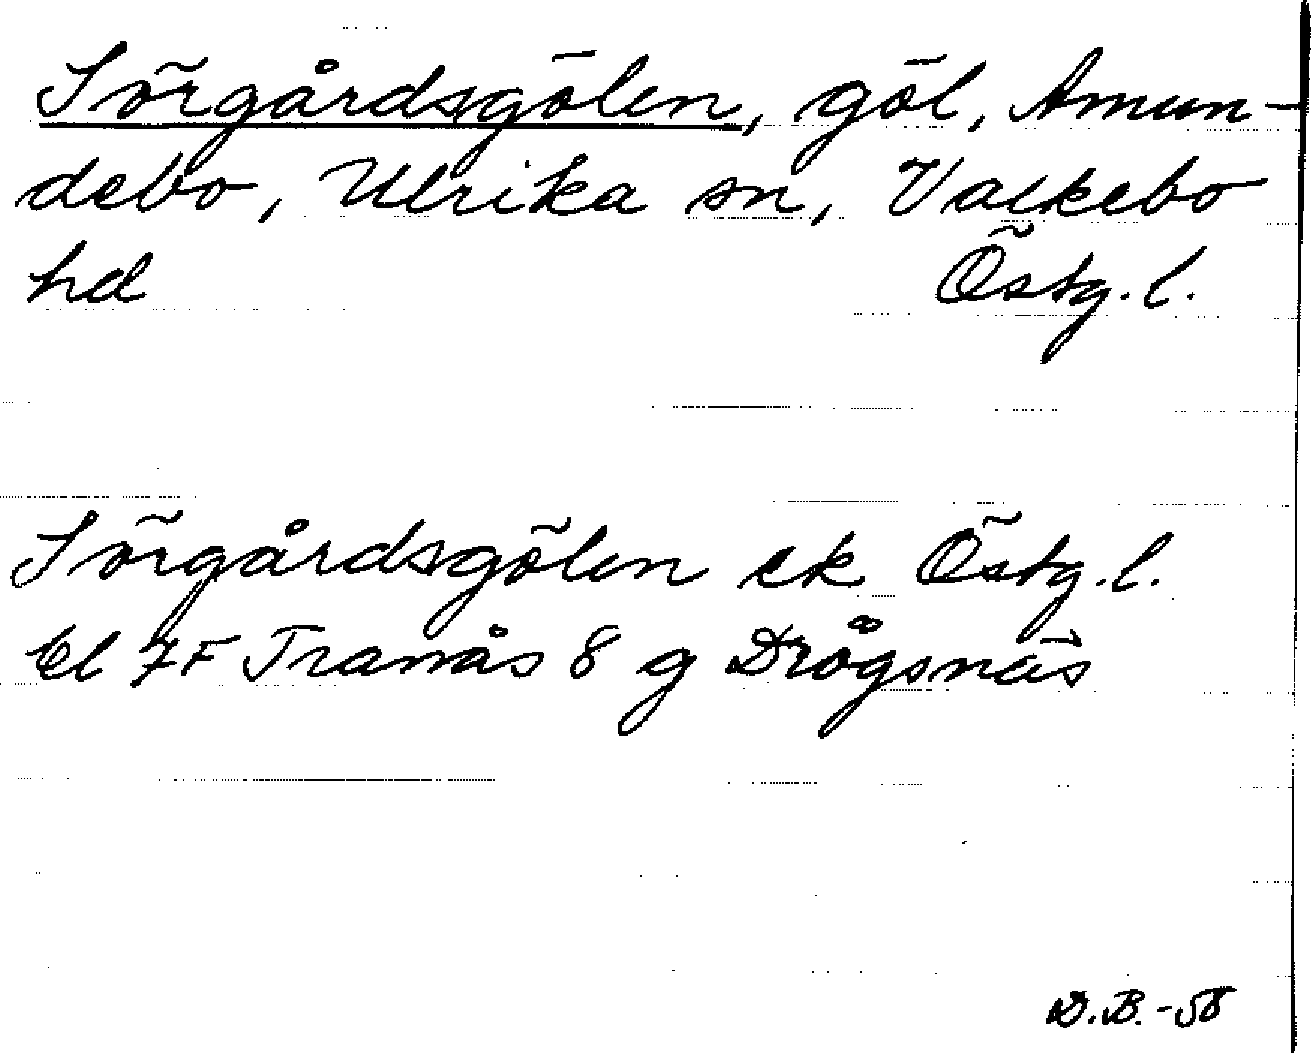 Sörgårdsgölen, göl, Amun-
debo, Ulrika sn, Valkebo
hd Östg. l.
Sörgårdsgölen ek Östg. l.
bl 7F Tranås 8 g Drögsnäs
D.B.-58